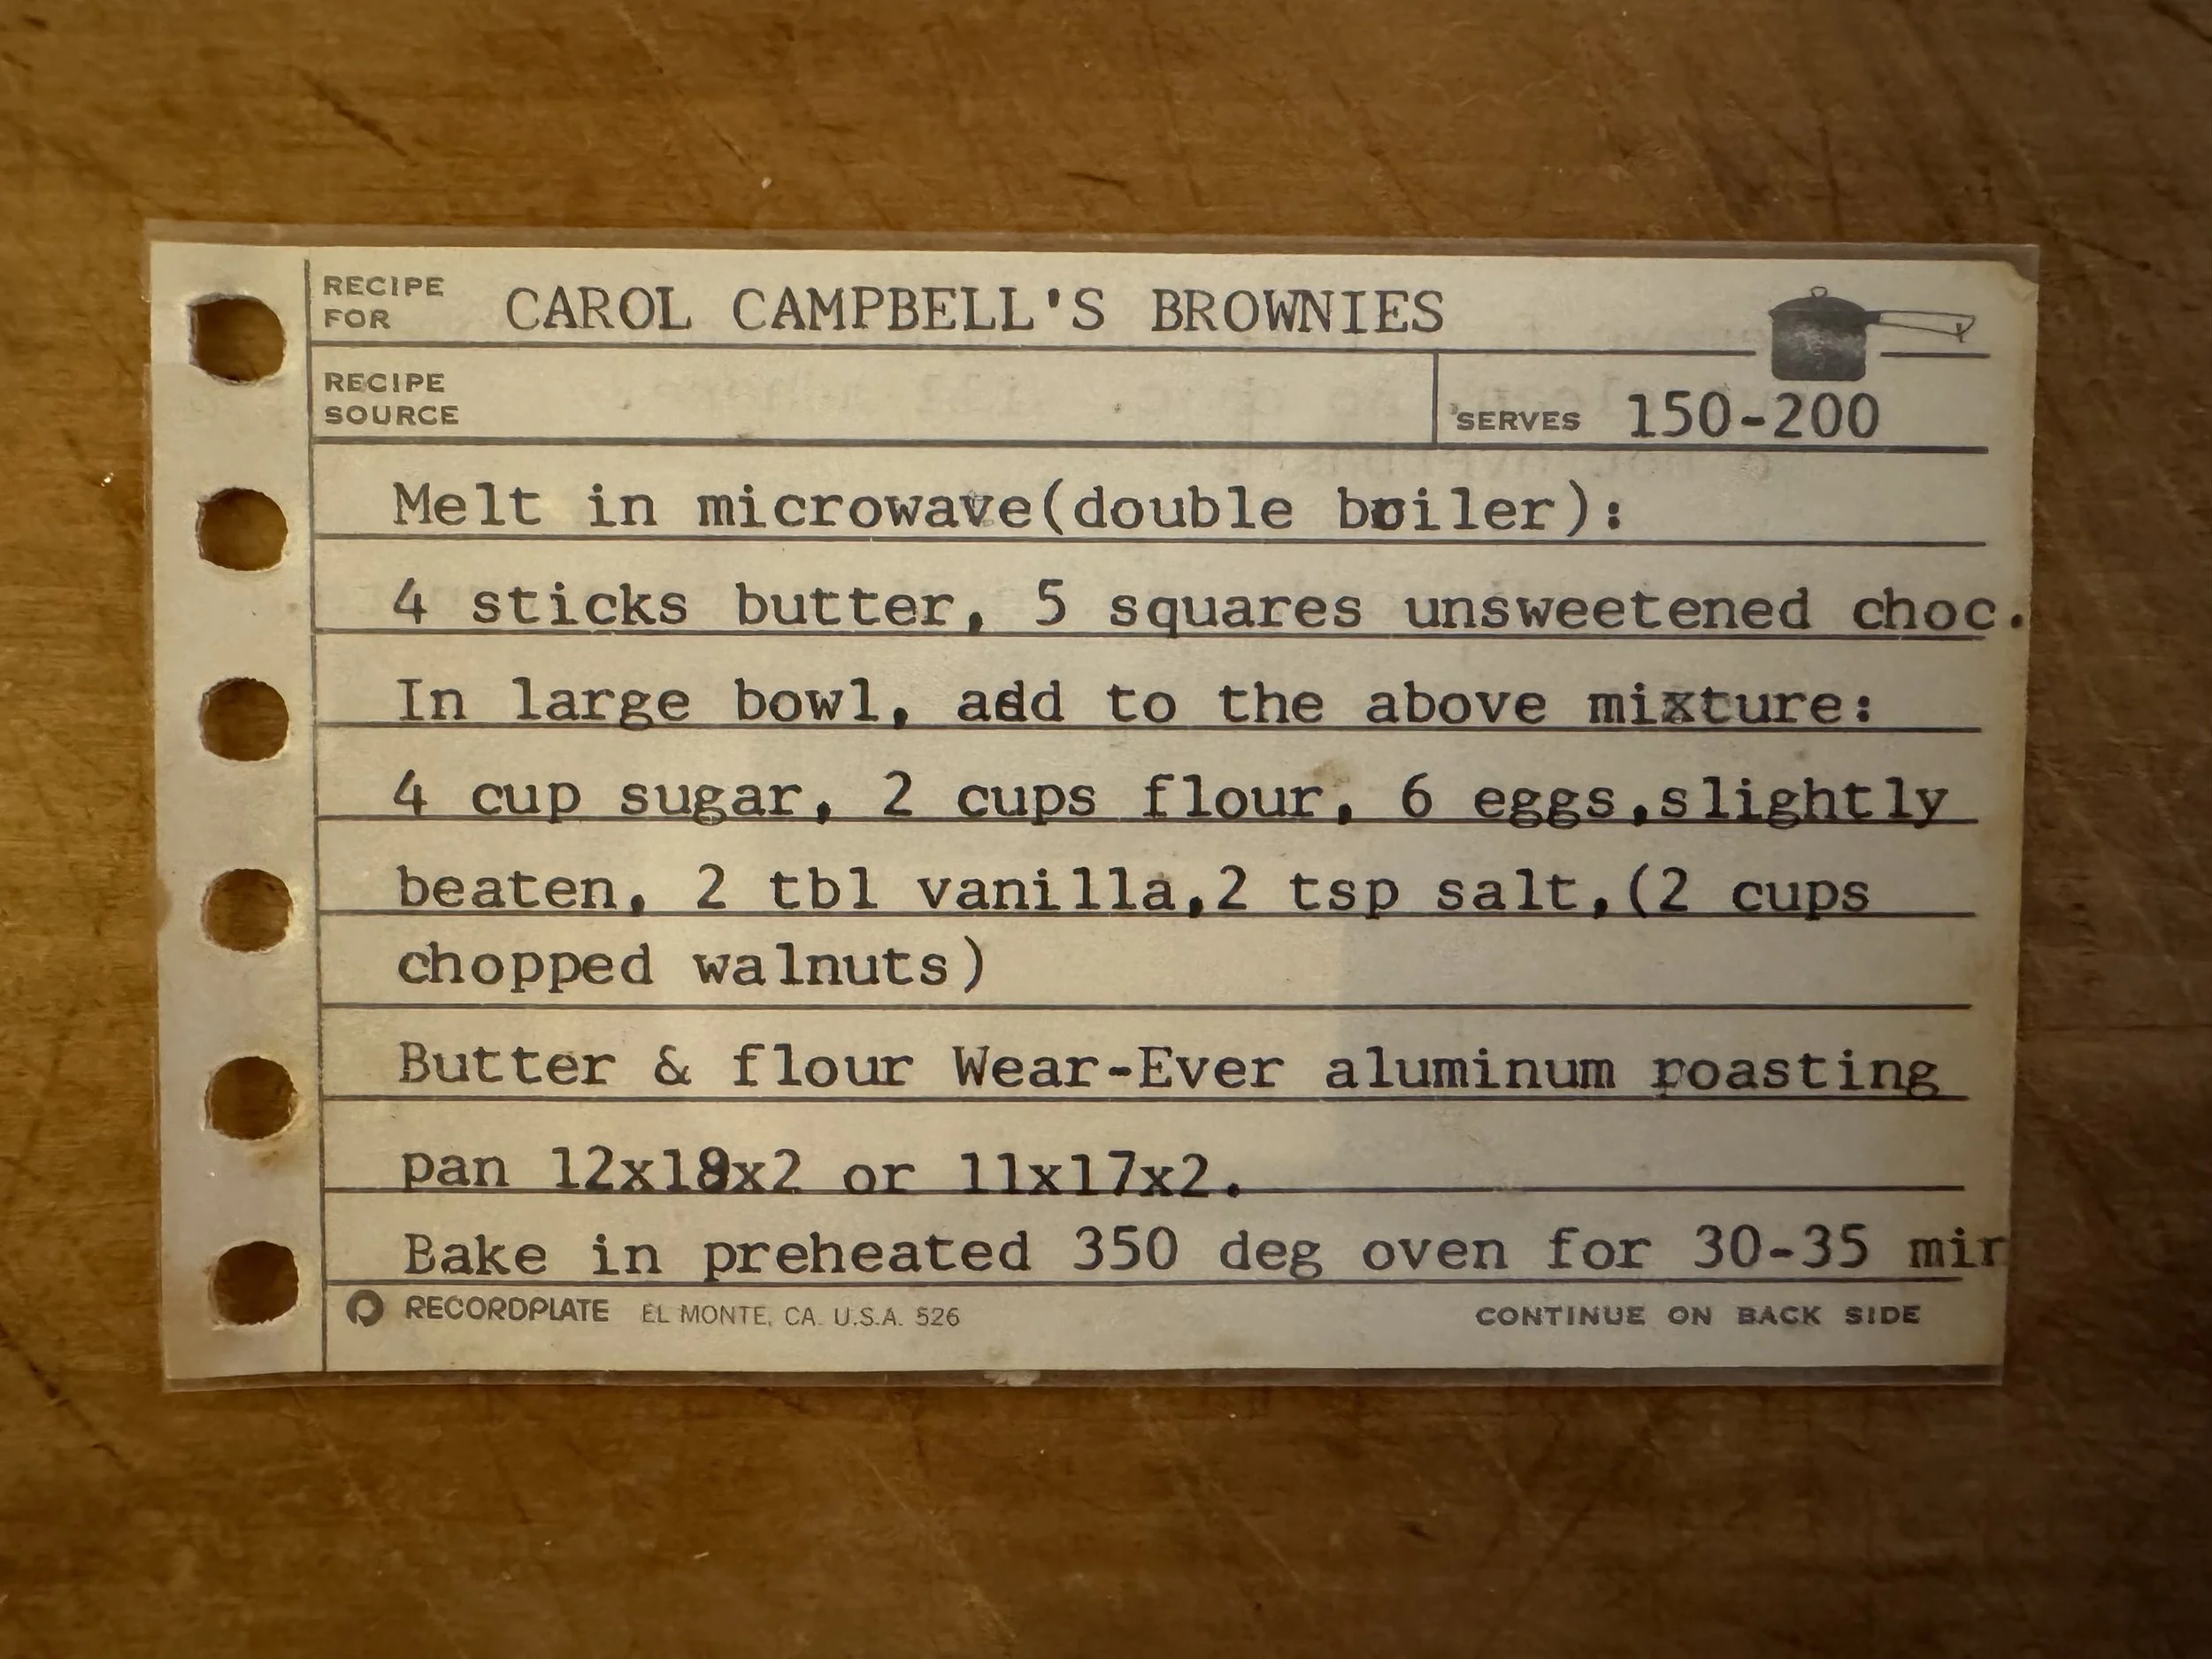 RECIPE FOR CAROL CAMPBELL'S BROWNIES
RECIPE SOURCE
SERVES 150-200
Melt in microwave(double boiler):
4 sticks butter, 5 squares unsweetened choc.
In large bowl, add to the above mixture:
4 cup sugar, 2 cups flour, 6 eggs,slightly
beaten, 2 tbl vanilla,2 tsp salt,(2 cups
chopped walnuts)
Butter & flour Wear-Ever aluminum roasting
pan 12x18x2 or 11x17x2.
Bake in preheated 350 deg oven for 30-35 min
RECORDPLATE EL MONTE, CA. U.S.A. 526
CONTINUE ON BACK SIDE